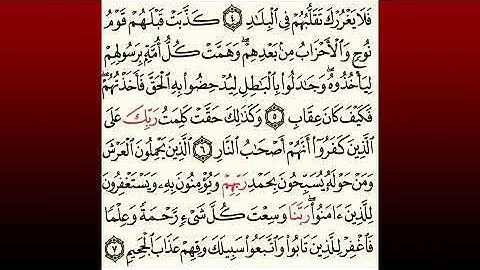 فَلَا يَغْرُرْكَ تَقَلُّبُهُمْ فِي الْبِلَادِ ۝٤ كَذَّبَتْ قَبْلَهُمْ قَوْمُ
نُوحٍ وَالْأَحْزَابُ مِنْ بَعْدِهِمْ وَهَمَّتْ كُلُّ أُمَّةٍ بِرَسُولِهِمْ
لِيَأْخُذُوهُ وَجَادَلُوا بِالْبَاطِلِ لِيُدْحِضُوا بِهِ الْحَقَّ فَأَخَذْتُهُمْ
فَكَيْفَ كَانَ عِقَابِ ۝٥ وَكَذَٰلِكَ حَقَّتْ كَلِمَتُ رَبِّكَ عَلَى
الَّذِينَ كَفَرُوا أَنَّهُمْ أَصْحَابُ النَّارِ ۝٦ الَّذِينَ يَحْمِلُونَ الْعَرْشَ
وَمَنْ حَوْلَهُ يُسَبِّحُونَ بِحَمْدِ رَبِّهِمْ وَيُؤْمِنُونَ بِهِ وَيَسْتَغْفِرُونَ
لِلَّذِينَ ءَامَنُوا رَبَّنَا وَسِعْتَ كُلَّ شَيْءٍ رَحْمَةً وَعِلْمًا
فَاغْفِرْ لِلَّذِينَ تَابُوا وَاتَّبَعُوا سَبِيلَكَ وَقِهِمْ عَذَابَ الْجَحِيمِ ۝٧